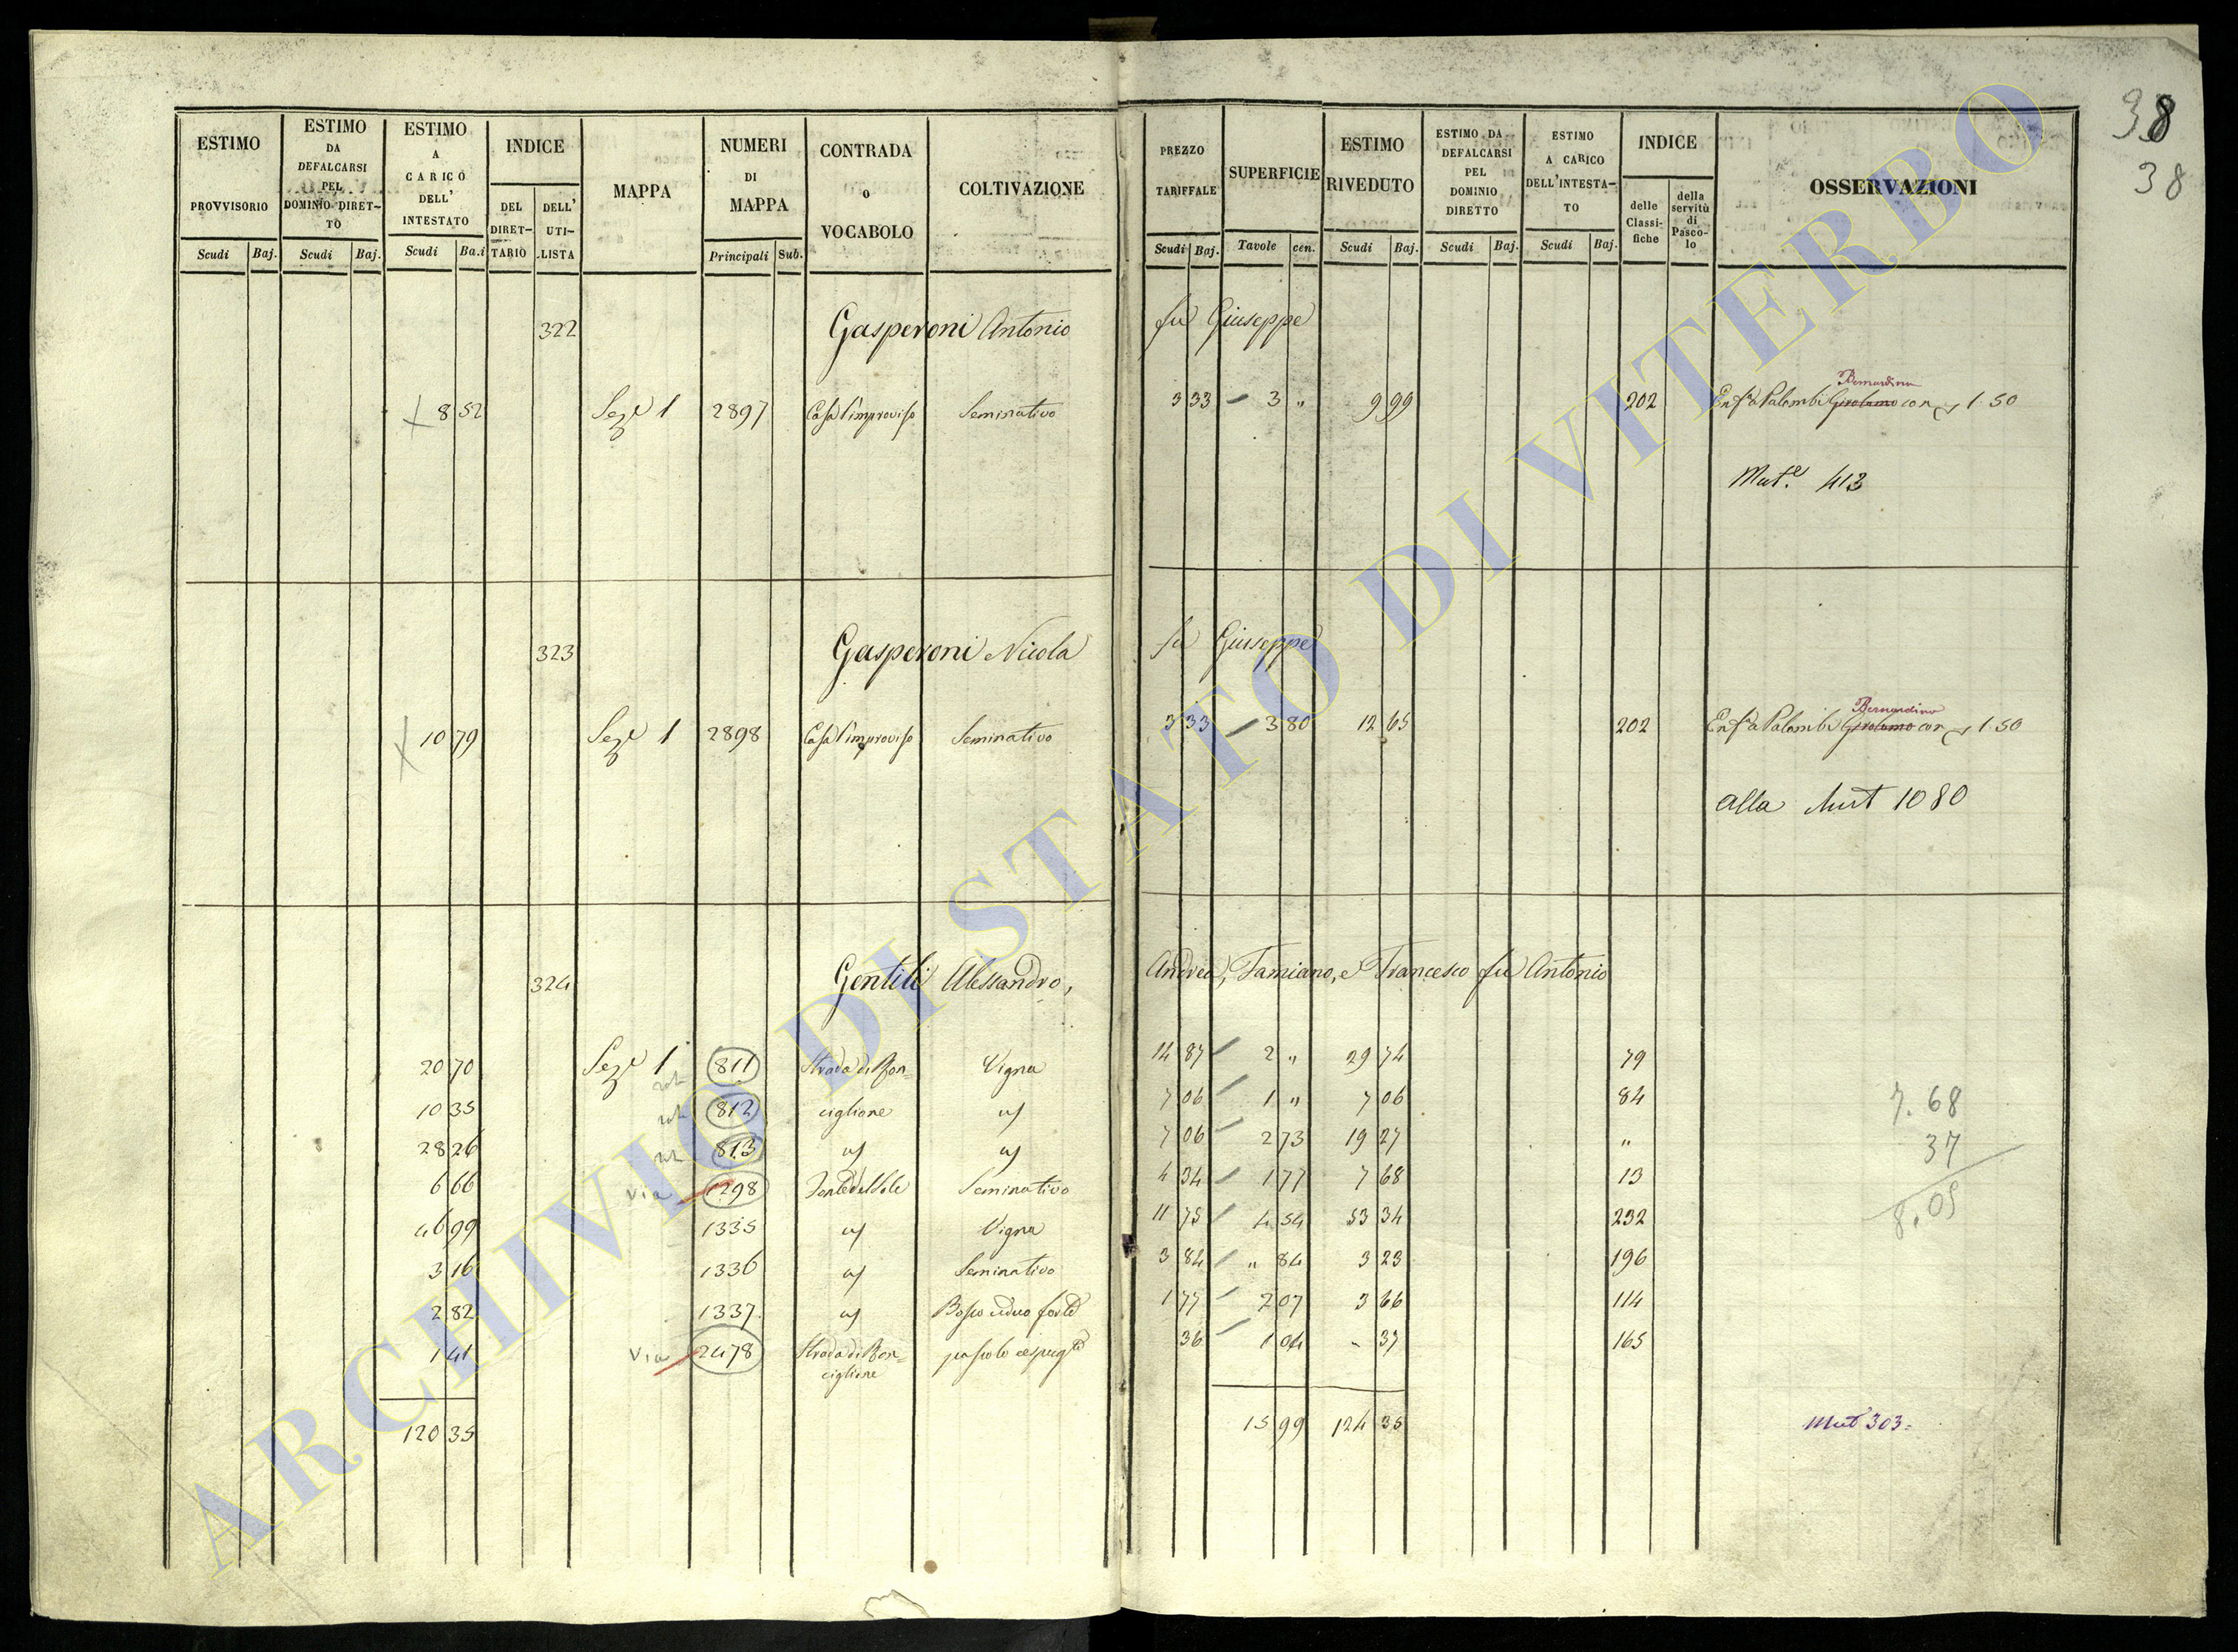 38
38
ESTIMO PROVVISORIO Scudi Baj.
ESTIMO DA DEFALCARSI PEL DOMINIO DIRETTO Scudi Baj.
ESTIMO A CARICO DELL' INTESTATO Scudi Ba.i
INDICE DEL DIRETTARIO DELL' UTILISTA
MAPPA
NUMERI DI MAPPA Principali Sub.
CONTRADA O VOCABOLO
COLTIVAZIONE
PREZZO TARIFFALE Scudi Baj.
SUPERFICIE Tavole cen.
ESTIMO RIVEDUTO Scudi Baj.
ESTIMO DA DEFALCARSI PEL DOMINIO DIRETTO Scudi Baj.
ESTIMO A CARICO DELL'INTESTATO Scudi Baj.
INDICE delle Classifiche della servitù di Pascolo
OSSERVAZIONI
322 Gasperoni Antonio fu Giuseppe
Bernardino
8 52 Sez.e 1 2897 Casa l'improviso Seminativo 3 33 3 " 9 99 202 Enf.a Palombi Girolamo con 1.50
Mut.e 413
323 Gasperoni Nicola fu Giuseppe
Bernardino
10 79 Sez.e 1 2898 Casa l'improviso Seminativo 3 33 3 80 12 65 202 Enf.a Palombi Girolamo con 1.50
alla Mut 1080
324 Gentili Alessandro, Andrea, Tamiano, e Francesco fu Antonio
20 70 Sez.e 1 811 Strada di Ron= Vigna 14 87 2 " 29 74 79
10 35 812 ciglione id 7 06 1 " 7 06 84 7.68
28 26 813 id id 7 06 2 73 19 27 " 37
6 66 Via 1298 Fonte del Sole Seminativo 4 34 1 77 7 68 13
46 99 1335 id Vigna 11 75 4 54 53 34 232 8.05
3 16 1336 id Seminativo 3 84 " 84 3 23 196
2 82 1337 id Bosco ceduo forte 1 77 2 07 3 66 114
1 41 Via 2478 Strada di Ron= ciglione pascolo cespug.o 36 1 04 - 37 165
120 35 15 99 124 35 Mut 303=
ARCHIVIO DI STATO DI VITERBO